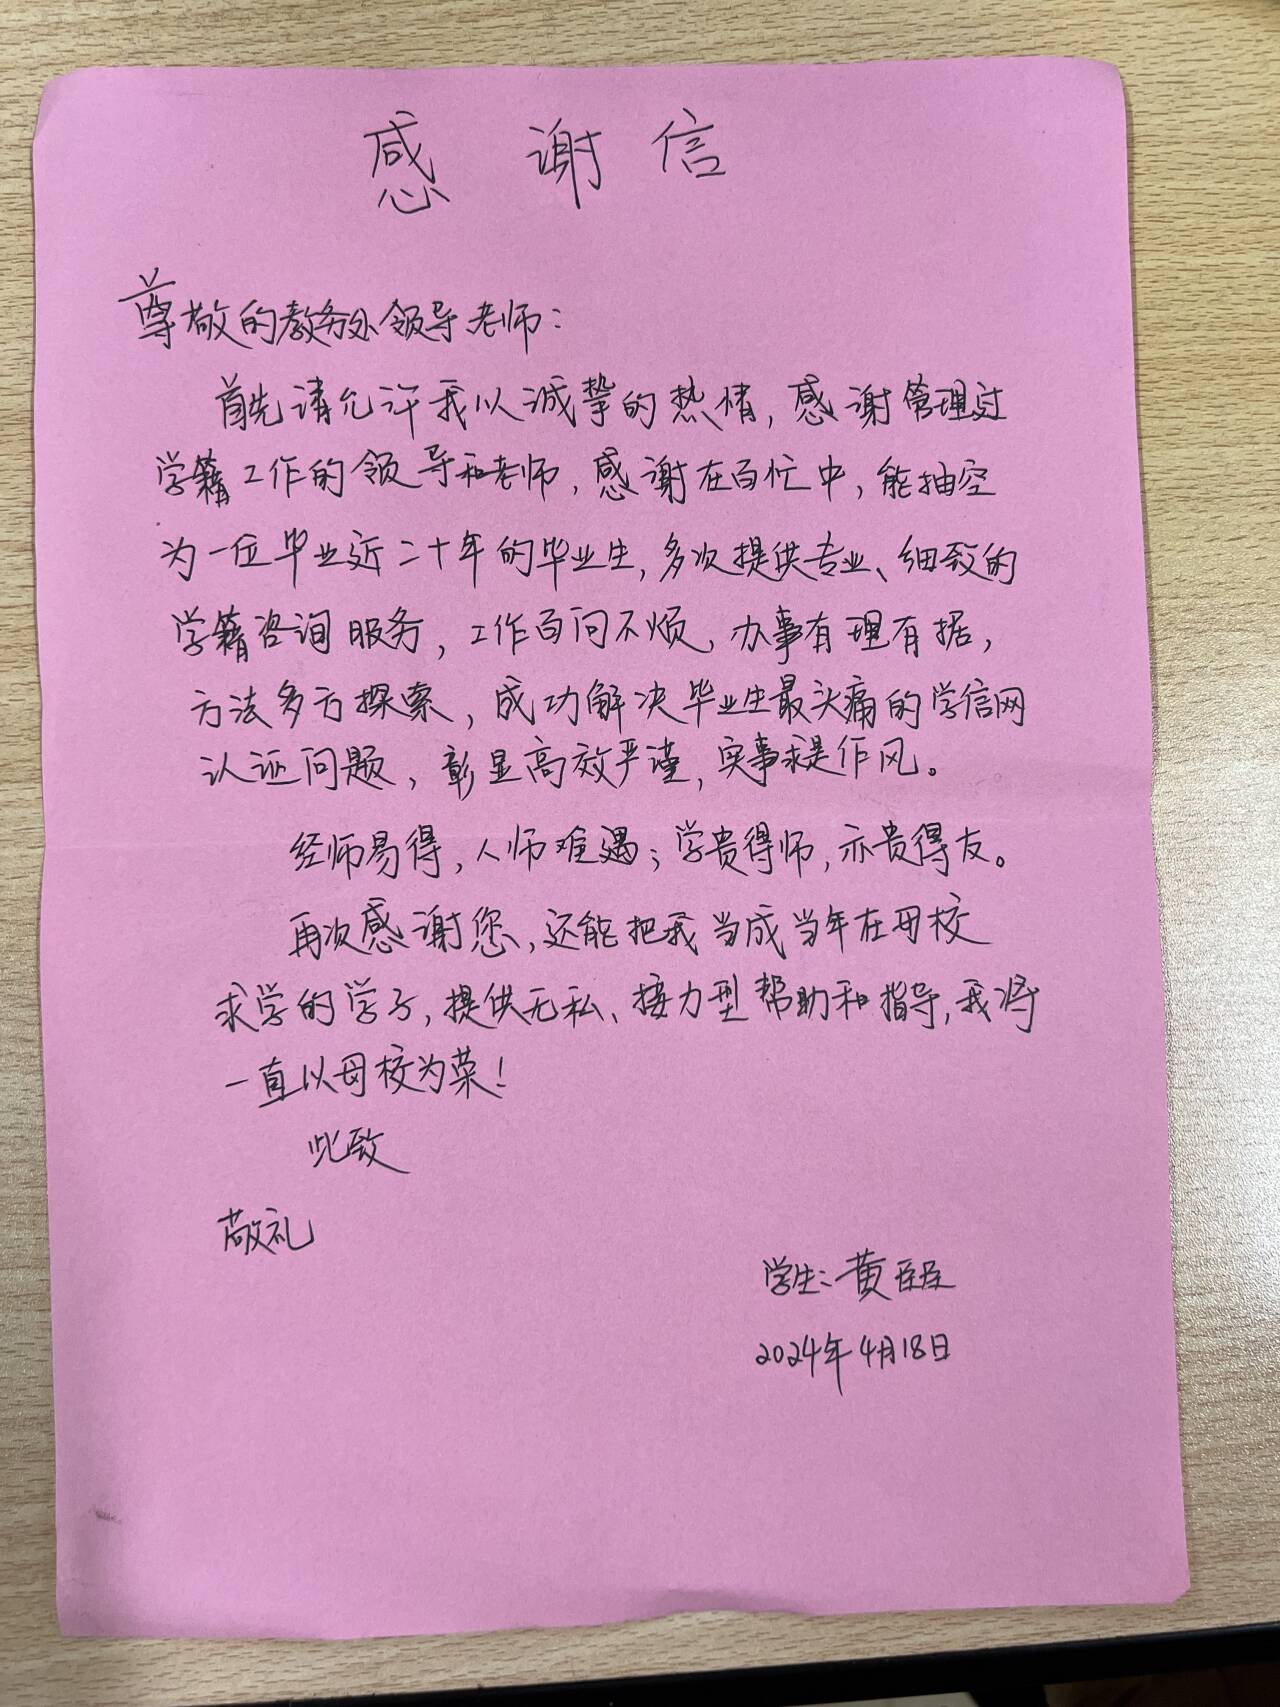 感谢信
尊敬的教务处领导老师：
首先请允许我以诚挚的热情，感谢管理过
学籍工作的领导和老师，感谢在百忙中，能抽空
为一位毕业近二十年的毕业生，多次提供专业、细致的
学籍咨询服务，工作百问不烦，办事有理有据，
方法多方探索，成功解决毕业生最头痛的学信网
认证问题，彰显高效严谨，实事求是作风。
经师易得，人师难遇；学贵得师，亦贵得友。
再次感谢您，还能把我当成当年在母校
求学的学子，提供无私、接力型帮助和指导，我将
一直以母校为荣！
此致
敬礼
学生：黄
2024年4月18日